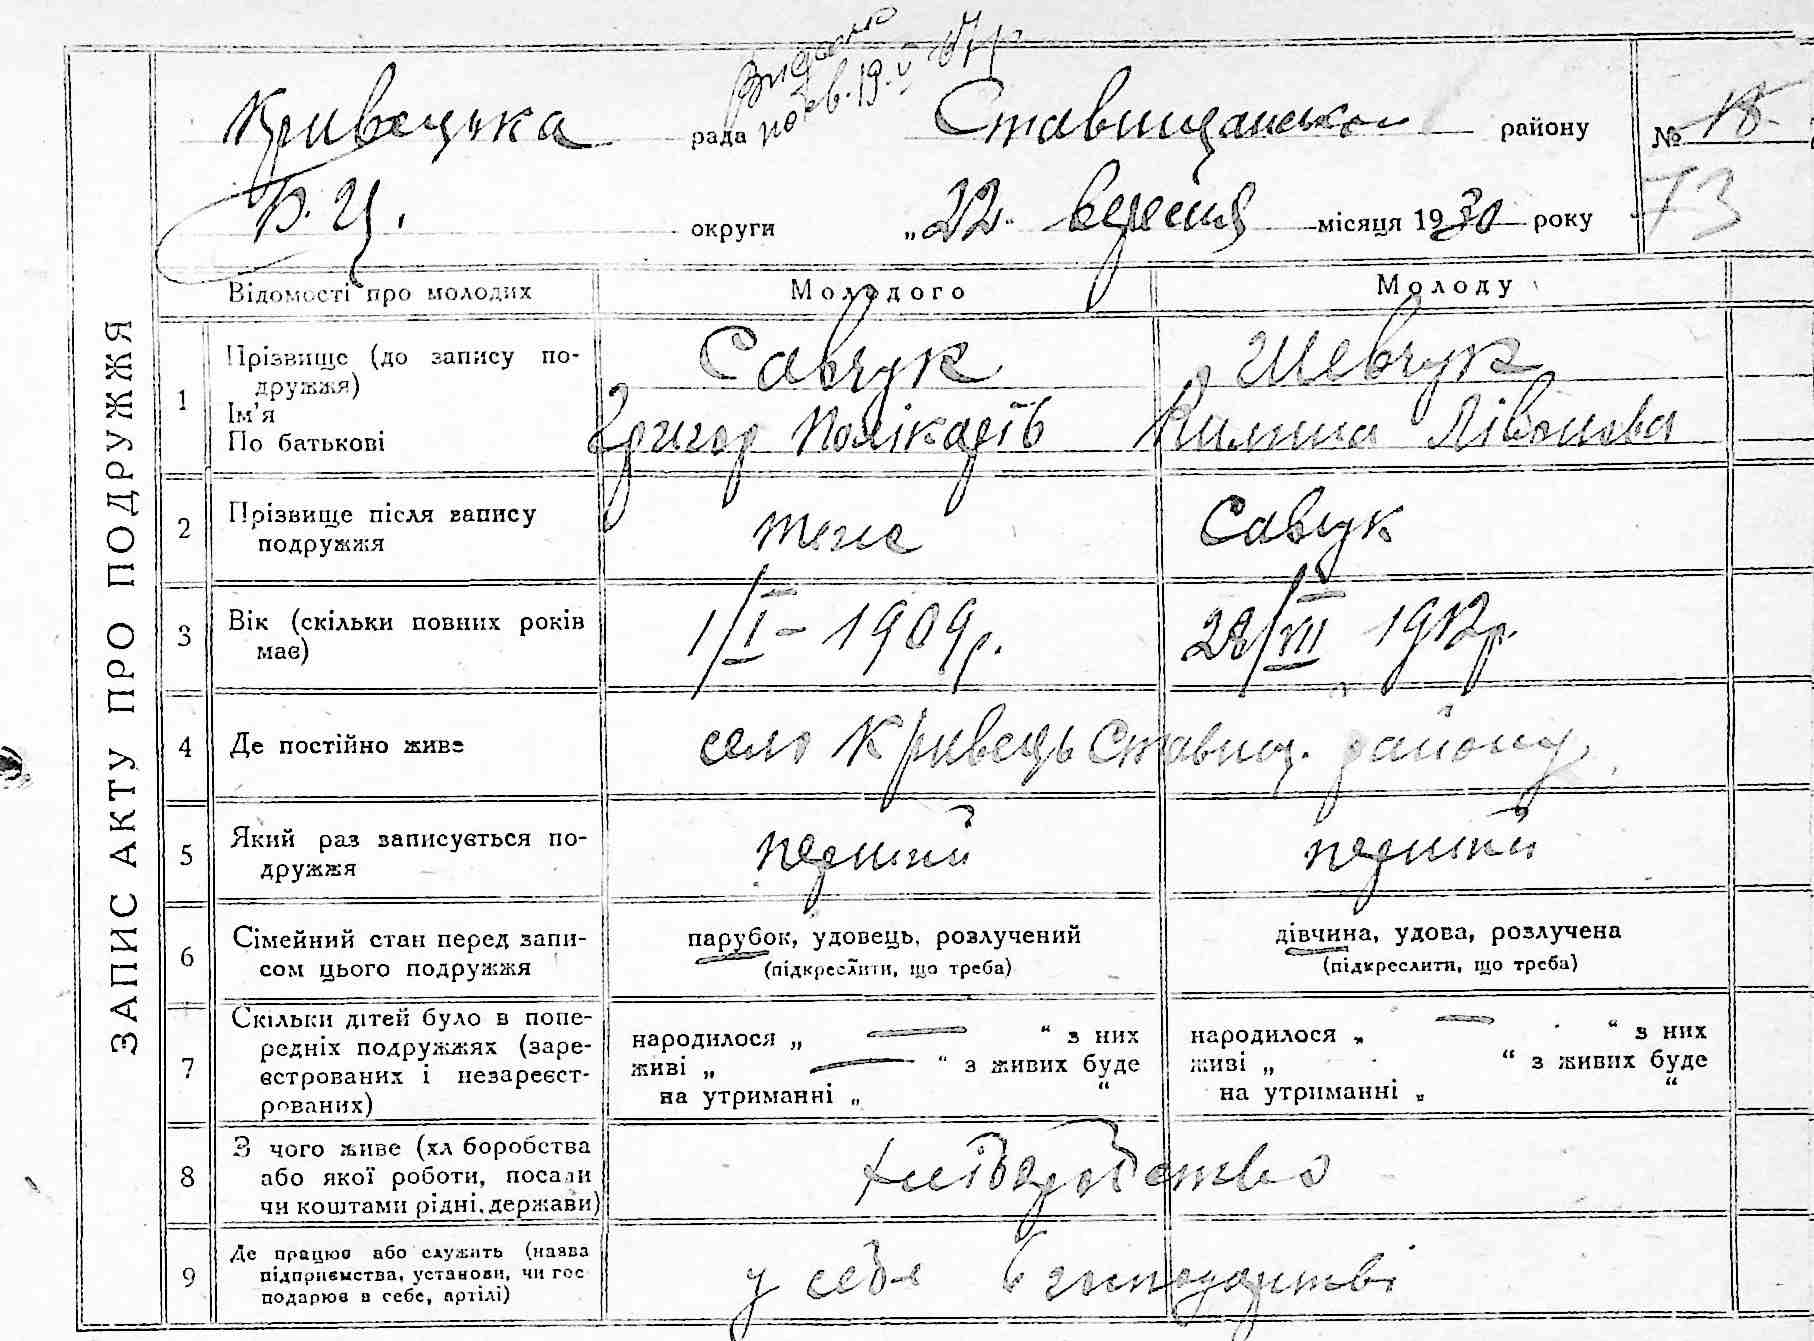 Видано
пов. 19. V 57 р
Кривецька рада Ставищансько району № 18
Б. Ц. округи „22" вересня місяця 1930 року 73
Відомості про молодих Молодого Молоду
ЗАПИС АКТУ ПРО ПОДРУЖЖЯ
1 Прізвище (до запису по-
дружжя)
Ім'я
По батькові
Савчук Шевчук
Григор Полікарпів Килина Лівонова
2 Прізвище після запису
подружжя
теж Савчук
3 Вік (скільки повних років
має)
1/I – 1909 р. 28/VII 1912 р.
4 Де постійно живе село Кривець Ставищ. району
5 Який раз записується по-
дружжя
перший перший
6 Сімейний стан перед запи-
сом цього подружжя
парубок, удовець, розлучений дівчина, удова, розлучена
(підкреслити, що треба) (підкреслити, що треба)
7 Скільки дітей було в попе-
редніх подружжях (заре-
єстрованих і незареєст-
рованих)
народилося „ — “ з них народилося „ — “ з них
живі „ — “ з живих буде живі „ “ з живих буде
на утриманні „ “ на утриманні „ “
8 З чого живе (хл боробства
або якої роботи, посади
чи коштами рідні, держави)
хліборобство
9 Де працює або служить (назва
підприємства, установи, чи гос
подарює в себе, артілі)
у себе в господарстві